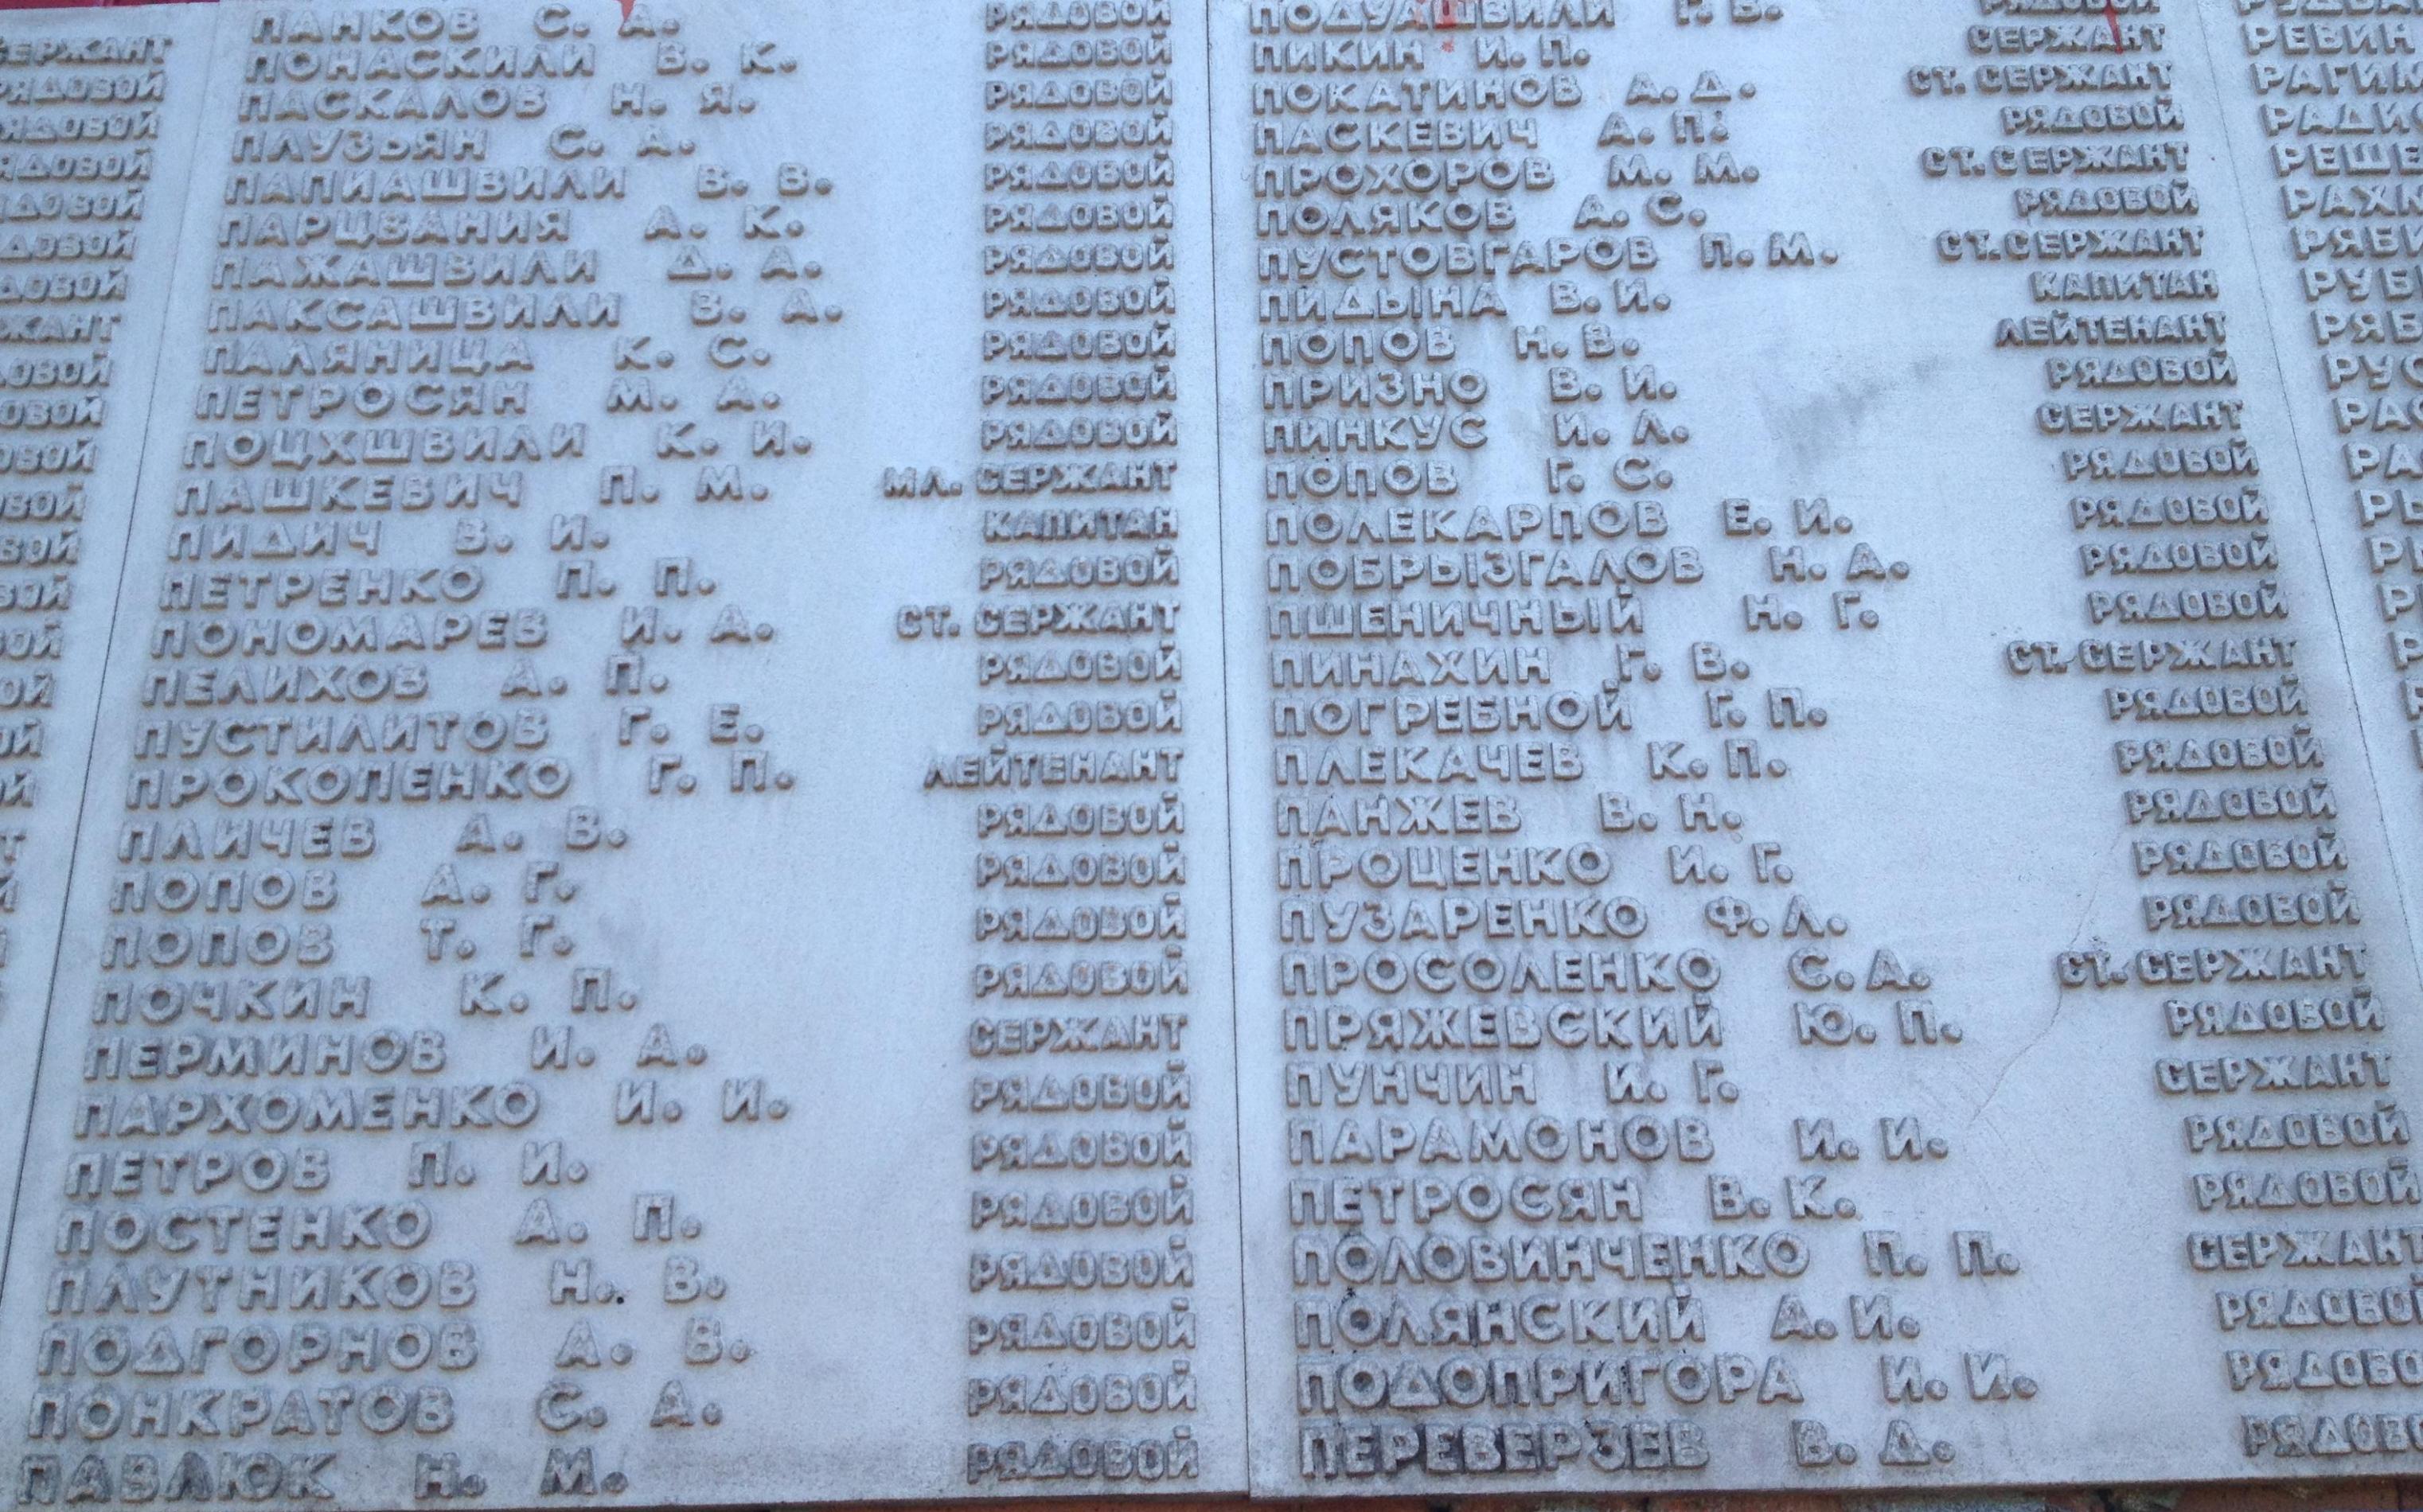 СЕРЖАНТ
РЯДОВОЙ
РЯДОВОЙ
ПАНКОВ С. А. РЯДОВОЙ
ПОНАСКИЛИ В. К. РЯДОВОЙ
ПАСКАЛОВ Н. Я. РЯДОВОЙ
ПЛУЗЬЯН С. А. РЯДОВОЙ
ПАПИАШВИЛИ В. В. РЯДОВОЙ
ПАРЦВАНИЯ А. К. РЯДОВОЙ
ПАЖАШВИЛИ Д. А. РЯДОВОЙ
ПАКСАШВИЛИ В. А. РЯДОВОЙ
ПАЛЯНИЦА К. С. РЯДОВОЙ
ПЕТРОСЯН М. А. РЯДОВОЙ
ПОЦХШВИЛИ К. И. РЯДОВОЙ
ПАШКЕВИЧ П. М. МЛ. СЕРЖАНТ
ПИДИЧ В. И. КАПИТАН
ПЕТРЕНКО П. П. РЯДОВОЙ
ПОНОМАРЕВ И. А. СТ. СЕРЖАНТ
ПЕЛИХОВ А. П. РЯДОВОЙ
ПУСТИЛИТОВ Г. Е. РЯДОВОЙ
ПРОКОПЕНКО Г. П. ЛЕЙТЕНАНТ
ПЛИЧЕВ А. В. РЯДОВОЙ
ПОПОВ А. Г. РЯДОВОЙ
ПОПОВ Т. Г. РЯДОВОЙ
ПОЧКИН К. П. РЯДОВОЙ
ПЕРМИНОВ И. А. СЕРЖАНТ
ПАРХОМЕНКО И. И. РЯДОВОЙ
ПЕТРОВ П. И. РЯДОВОЙ
ПОСТЕНКО А. П. РЯДОВОЙ
ПЛУТНИКОВ Н. В. РЯДОВОЙ
ПОДГОРНОВ А. В. РЯДОВОЙ
ПОНКРАТОВ С. А. РЯДОВОЙ
ПАВЛЮК Н. М. РЯДОВОЙ
ПОДУАШВИЛИ Г. В. РЯДОВОЙ
ПИКИН И. П. СЕРЖАНТ
ПОКАТИНОВ А. Д. СТ. СЕРЖАНТ
ПАСКЕВИЧ А. П. РЯДОВОЙ
ПРОХОРОВ М. М. СТ. СЕРЖАНТ
ПОЛЯКОВ А. С. РЯДОВОЙ
ПУСТОВГАРОВ П. М. СТ. СЕРЖАНТ
ПИДЫНА В. И. КАПИТАН
ПОПОВ Н. В. ЛЕЙТЕНАНТ
ПРИЗНО В. И. РЯДОВОЙ
ПИНКУС И. Л. СЕРЖАНТ
ПОПОВ Г. С. РЯДОВОЙ
ПОЛЕКАРПОВ Е. И. РЯДОВОЙ
ПОБРЫЗГАЛОВ Н. А. РЯДОВОЙ
ПШЕНИЧНЫЙ Н. Г. РЯДОВОЙ
ПИНАХИН Г. В. СТ. СЕРЖАНТ
ПОГРЕБНОЙ Г. П. РЯДОВОЙ
ПЛЕКАЧЕВ К. П. РЯДОВОЙ
ПАНЖЕВ В. Н. РЯДОВОЙ
ПРОЦЕНКО И. Г. РЯДОВОЙ
ПУЗАРЕНКО Ф. Л. РЯДОВОЙ
ПРОСОЛЕНКО С. А. СТ. СЕРЖАНТ
ПРЯЖЕВСКИЙ Ю. П. РЯДОВОЙ
ПУНЧИН И. Г. СЕРЖАНТ
ПАРАМОНОВ И. И. РЯДОВОЙ
ПЕТРОСЯН В. К. РЯДОВОЙ
ПОЛОВИНЧЕНКО П. П. СЕРЖАНТ
ПОЛЯНСКИЙ А. И. РЯДОВОЙ
ПОДОПРИГОРА И. И. РЯДОВО
ПЕРЕВЕРЗЕВ В. Д. РЯДОВО
РЕВИН